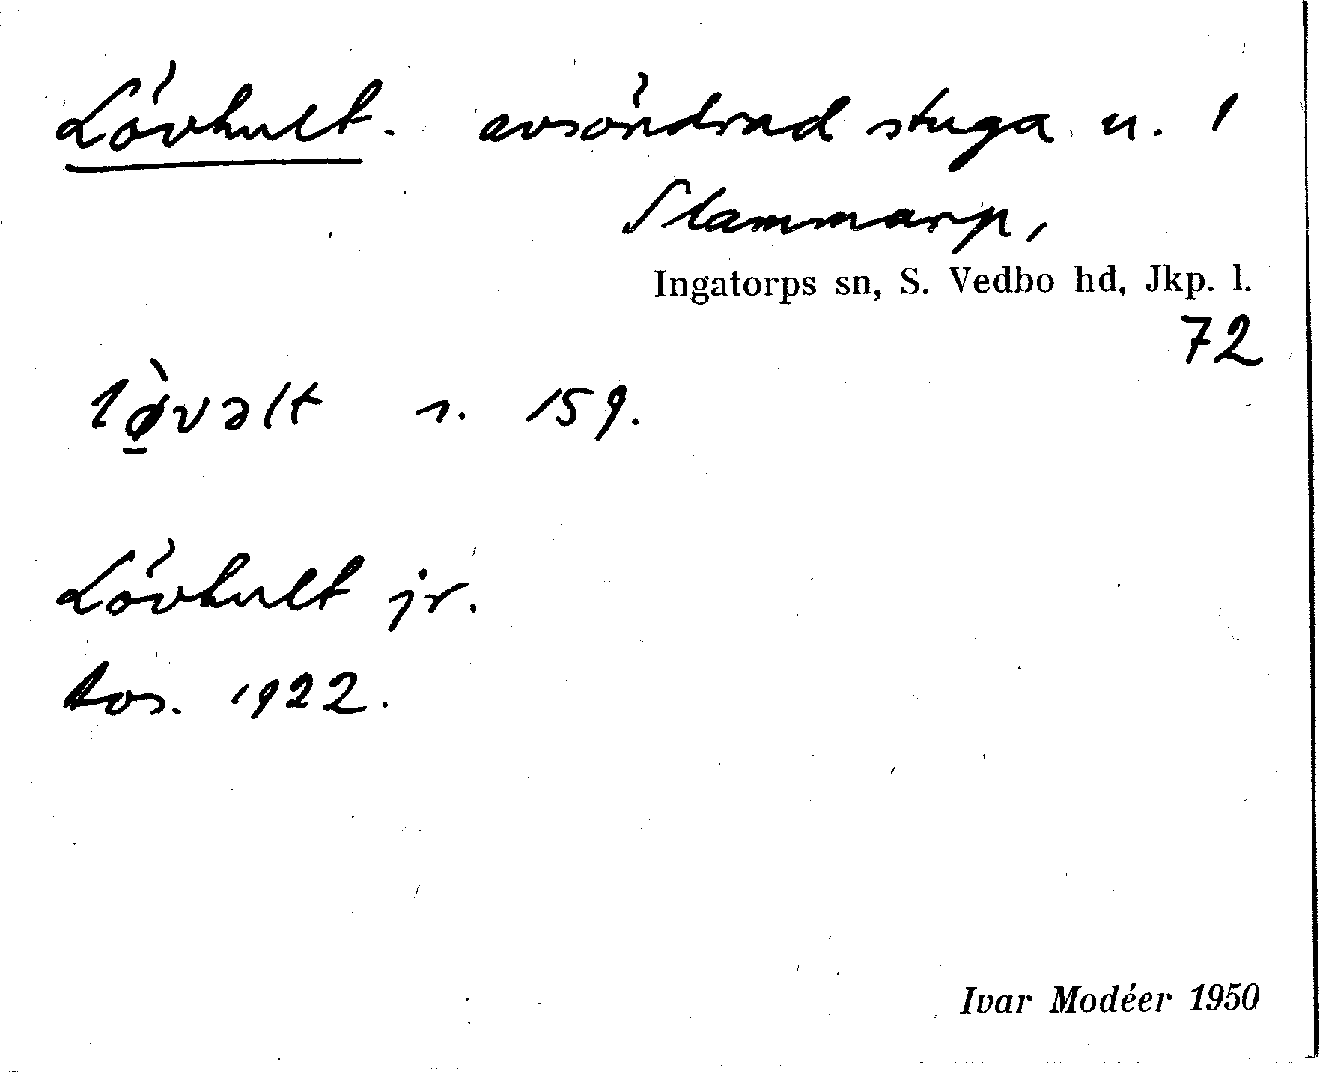 Lövhult. avsöndrad stuga u. 1
Slammarp,
Ingatorps sn, S. Vedbo hd, Jkp. l.
72
lø̠̀vəlt s. 159.
Lövhult jr.
tos. 1922.
Ivar Modéer 1950